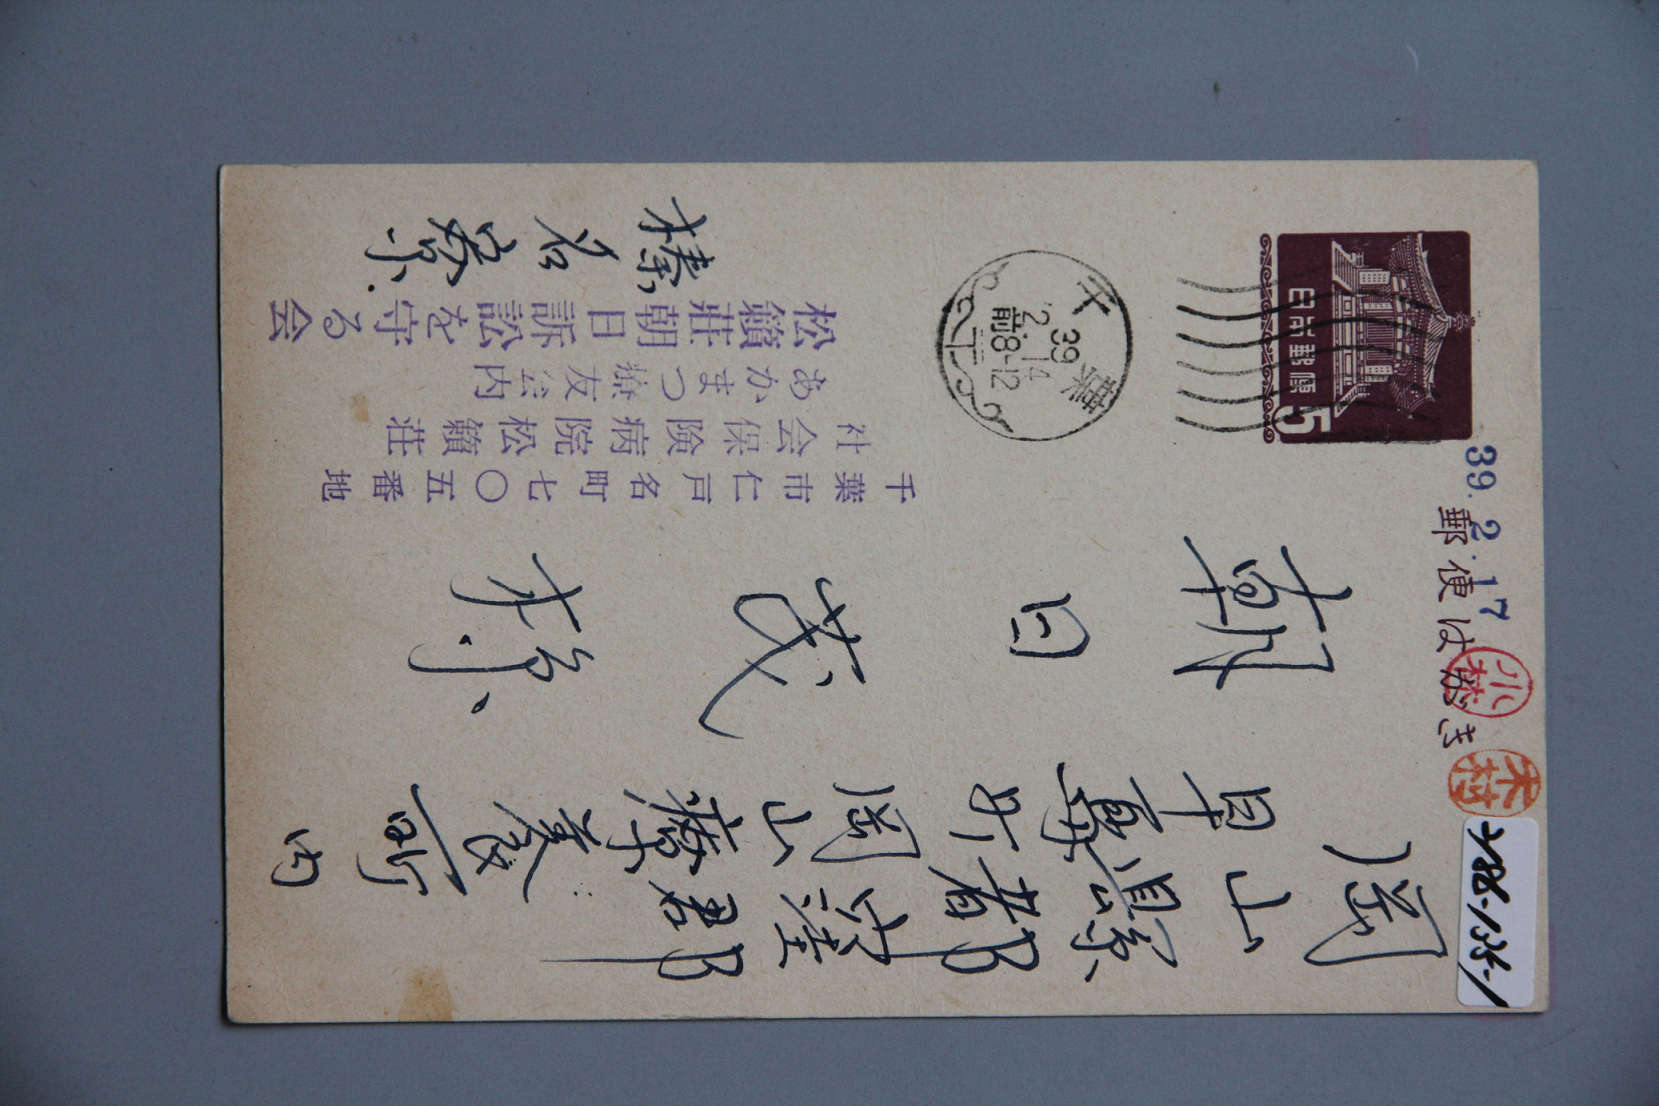 郵便はがき
39.2.17
小林
木村
日本郵便
5
千葉
39
2.14
前8-12
岡山縣都窪郡
早島町岡山療養所内
朝日茂様
千葉市仁戸名町七〇五番地
社会保険病院松籟荘
あかまつ療友会内
松籟荘朝日訴訟を守る会
榛名寮